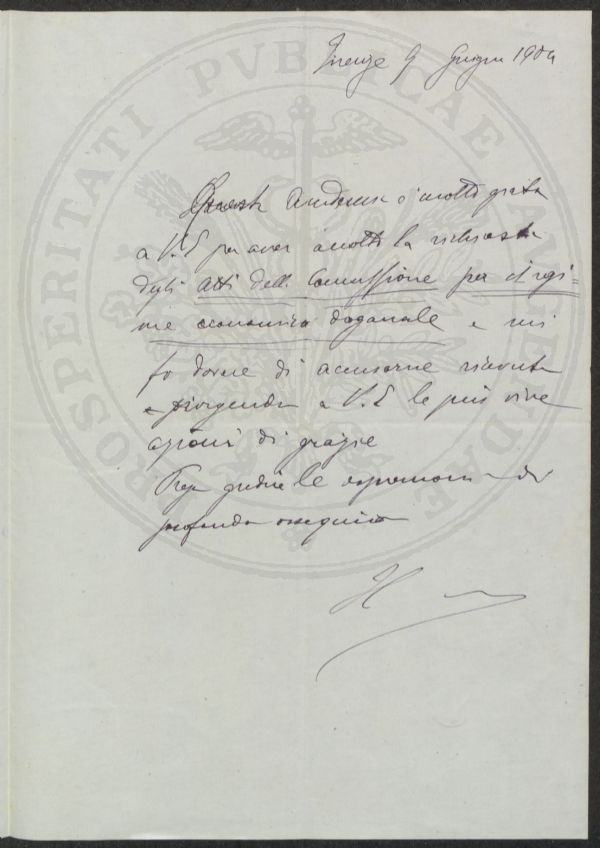 PROSPERITATI PVBLICAE AVGENDAE
Firenze 9 Giugno 1904
Questa Accademia è molto grata
a V.E per aver accolto la richiesta
degli Atti della Commissione per il regi=
me economico doganale e mi
fo dovere di accusarne ricevuta
porgendo a V.E le più vive
azioni di grazie
gradire le espressioni di
profondo ossequio